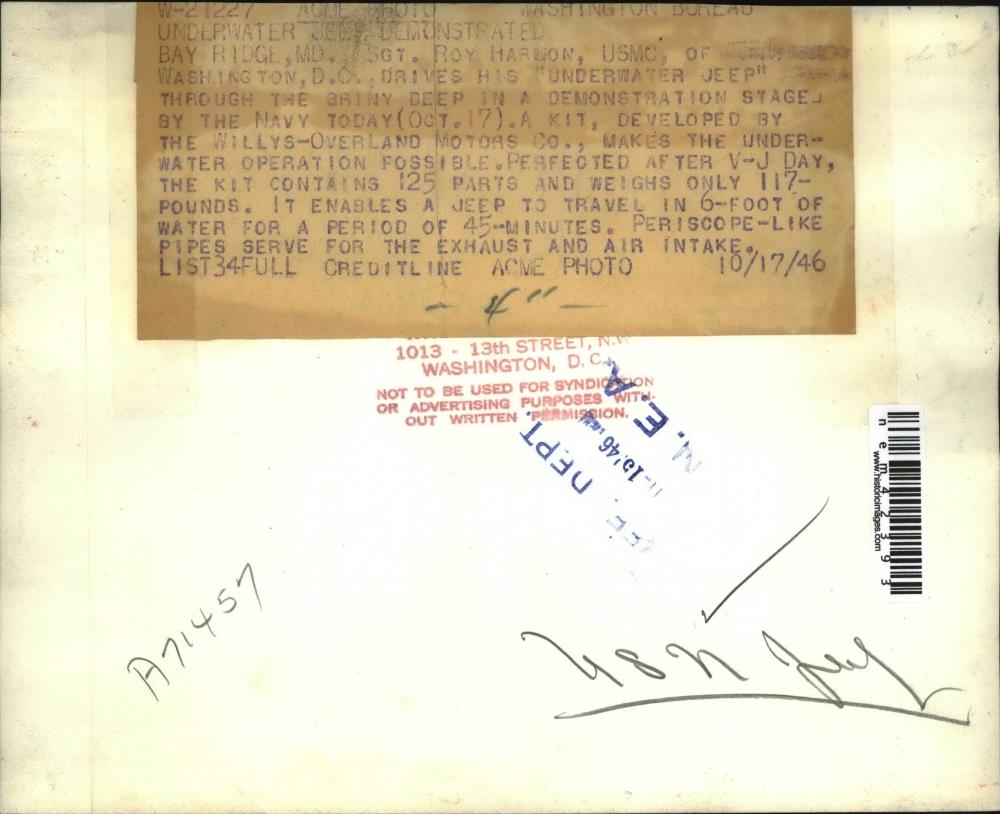 W-21227 ACME PHOTO WASHINGTON BUREAU
UNDERWATER JEEP DEMONSTRATED
BAY RIDGE, MD. SGT. ROY HARMON, USMC, OF
WASHINGTON, D.C., DRIVES HIS "UNDERWATER JEEP"
THROUGH THE BRINY DEEP IN A DEMONSTRATION STAGED
BY THE NAVY TODAY(OCT.17). A KIT, DEVELOPED BY
THE WILLYS-OVERLAND MOTORS CO., MAKES THE UNDER-
WATER OPERATION POSSIBLE. PERFECTED AFTER V-J DAY,
THE KIT CONTAINS 125 PARTS AND WEIGHS ONLY 117-
POUNDS. IT ENABLES A JEEP TO TRAVEL IN 6-FOOT OF
WATER FOR A PERIOD OF 45-MINUTES. PERISCOPE-LIKE
PIPES SERVE FOR THE EXHAUST AND AIR INTAKE.
LIST34FULL CREDITLINE ACME PHOTO 10/17/46
- 4" -
1013 - 13th STREET, N.W.
WASHINGTON, D. C.
NOT TO BE USED FOR SYNDICATION
OR ADVERTISING PURPOSES WITH-
OUT WRITTEN PERMISSION.
DEPT.
N. E. A.
nem42393
www.historicimages.com
A71457